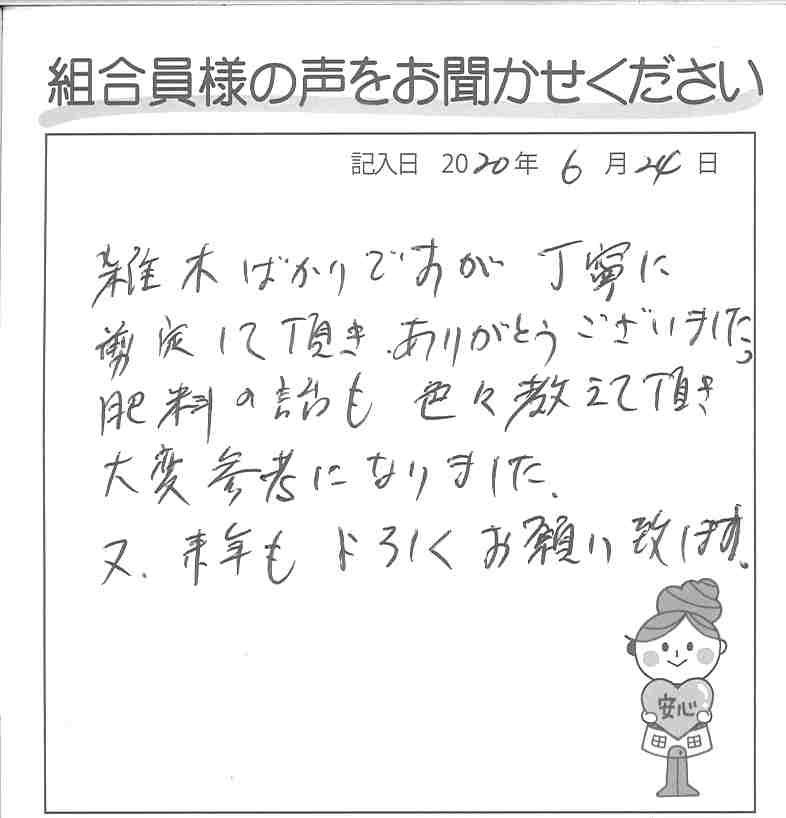 組合員様の声をお聞かせください
記入日 2020年 6月24日
雑木ばかりですが 丁寧に
剪定して頂き、ありがとうございました。
肥料の話も 色々教えて頂き
大変参考になりました。
又、来年も よろしくお願い致します。
安心